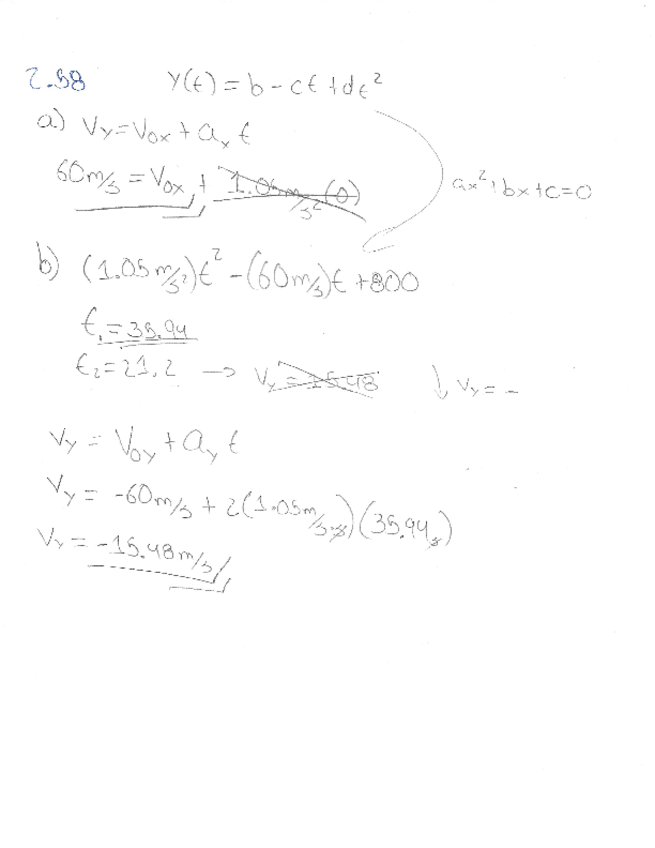 2.58 y(t) = b - ct + dt²
a) Vy = Vox + ax t
60m/s = Vox + 1.05m/s² (0)
ax² + bx + c = 0
b) (1.05 m/s²)t² - (60m/s)t + 800
t₁ = 35.94
t₂ = 21.2 → Vy = 15.48 ↓ Vy = -
Vy = Voy + ay t
Vy = -60m/s + 2(1.05m/s·s)(35.94s)
Vy = -15.48m/s